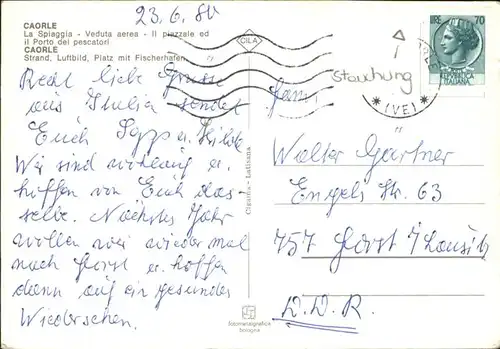 23.6.80
CAORLE
La Spiaggia - Veduta aerea - Il piazzale ed
il Porto dei pescatori
CAORLE
Strand, Luftbild, Platz mit Fischerhafen
Recht liebe Grüsse
aus Italia sendet
Euch Sepp u. Hilde
Wir sind wohlauf u.
hoffen von Euch das-
selbe. Nächstes Jahr
wollen wir wieder mal
nach Forst u. hoffen
dann auf ein gesundes
Wiedersehen.
CILA
Cigaina - Latisana
fotometalgrafica
bologna
LIRE 70
Stauchung
(VE)
Fam.
Walter Gärtner
Engels Str. 63
757 Forst / Lausitz
D.D.R.